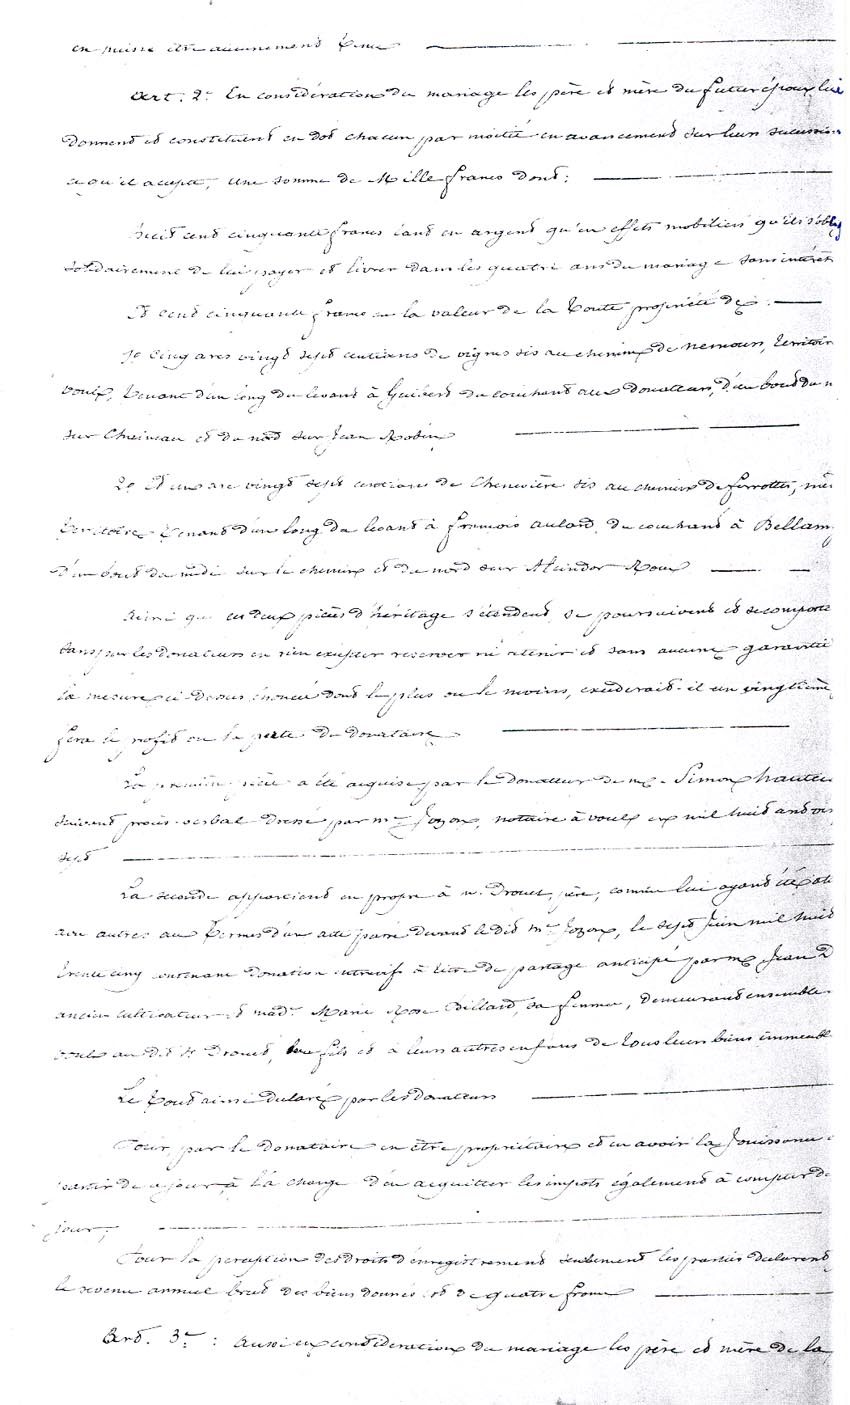 en puisse être aucunement tenu
Art. 2e En considération du mariage les père et mère du futur époux lui
donnent et constituent en dot chacun par moitié en avancement sur leurs succession
ce qu'il accepte, une somme de Mille francs dont :
huit cent cinquante francs tant en argent qu'en effets mobiliers qu'ils s'oblig
solidairement de lui payer et livrer dans les quatre ans du mariage sans intérêt
Et cent cinquante francs en la valeur de la toute propriété de :
1o Cinq ares vingt sept centiares de vignes sis au chemin de nemours, territoir
voulx, tenant d'un long du levant à Guibert du couchant aux donateurs, d'un bout du m
sur Cheineau et du nord sur Jean Robin
2o Et un are vingt sept centiares de Chenevière sis au chemin de ferrottes, mêm
territoire tenant d'un long du levant à francois aulard, du couchant à Bellamy
d'un bout du midi sur le chemin et du nord sur Roux
Ainsi que ces deux pièces d'héritage s'étendent, se poursuivent et se comporte
sans par les donateurs en rien excepter reserver ni retenir et sans aucune garantie
la mesure ci-dessus énoncée dont le plus ou le moins, excéderait-il un vingtième
fera le profit ou la perte du donataire
La première pièce a été acquise par le donateur de me Simon hauteu
suivant procès-verbal dressé par me Jozon, notaire à voulx en mil huit cent
sept
La seconde appartient en propre à m. Drouet, père, comme lui ayant été
avec autres aux termes d'un acte passé devant le dit me Jozon, le sept Juin mil huit
trente cinq contenant donation entrevifs à titre de partage anticipé par m Jean D
ancien cultivateur et made Marie Rose Billard, sa femme, demeurant ensemble
voulx au dit Mr Drouet, leur fils et à leurs autres enfans de tous leurs biens immeubl
Le tout ainsi déclaré par les donateurs
Pour, par le donataire en être propriétaire et en avoir la Jouissance
partir de ce jour, à la charge d'en acquitter les impots également à compter de
jour ;
Pour la perception des droits d'enregistrement seulement les parties déclarent
le revenu annuel brut des biens donnés est de quatre francs
Art. 3e : Aussi en considération du mariage les père et mère de la